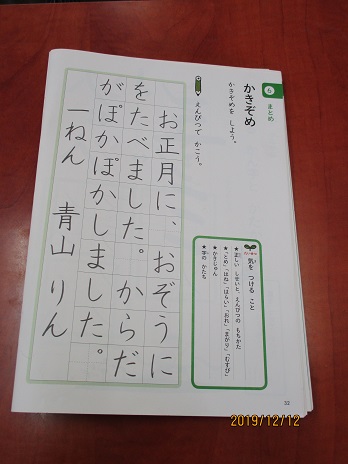 6
まとめ
かきぞめ
かきぞめを しよう。
えんぴつで かこう。
気を つける こと
★正しい しせいと、えんぴつの もちかた
★「とめ」「はね」「はらい」「おれ」「まがり」「むすび」
★かきじゅん
★字の かたち
お正月に、おぞうに
をたべました。からだ
がぽかぽかしました。
一ねん 青山 りん
52
2019/12/12